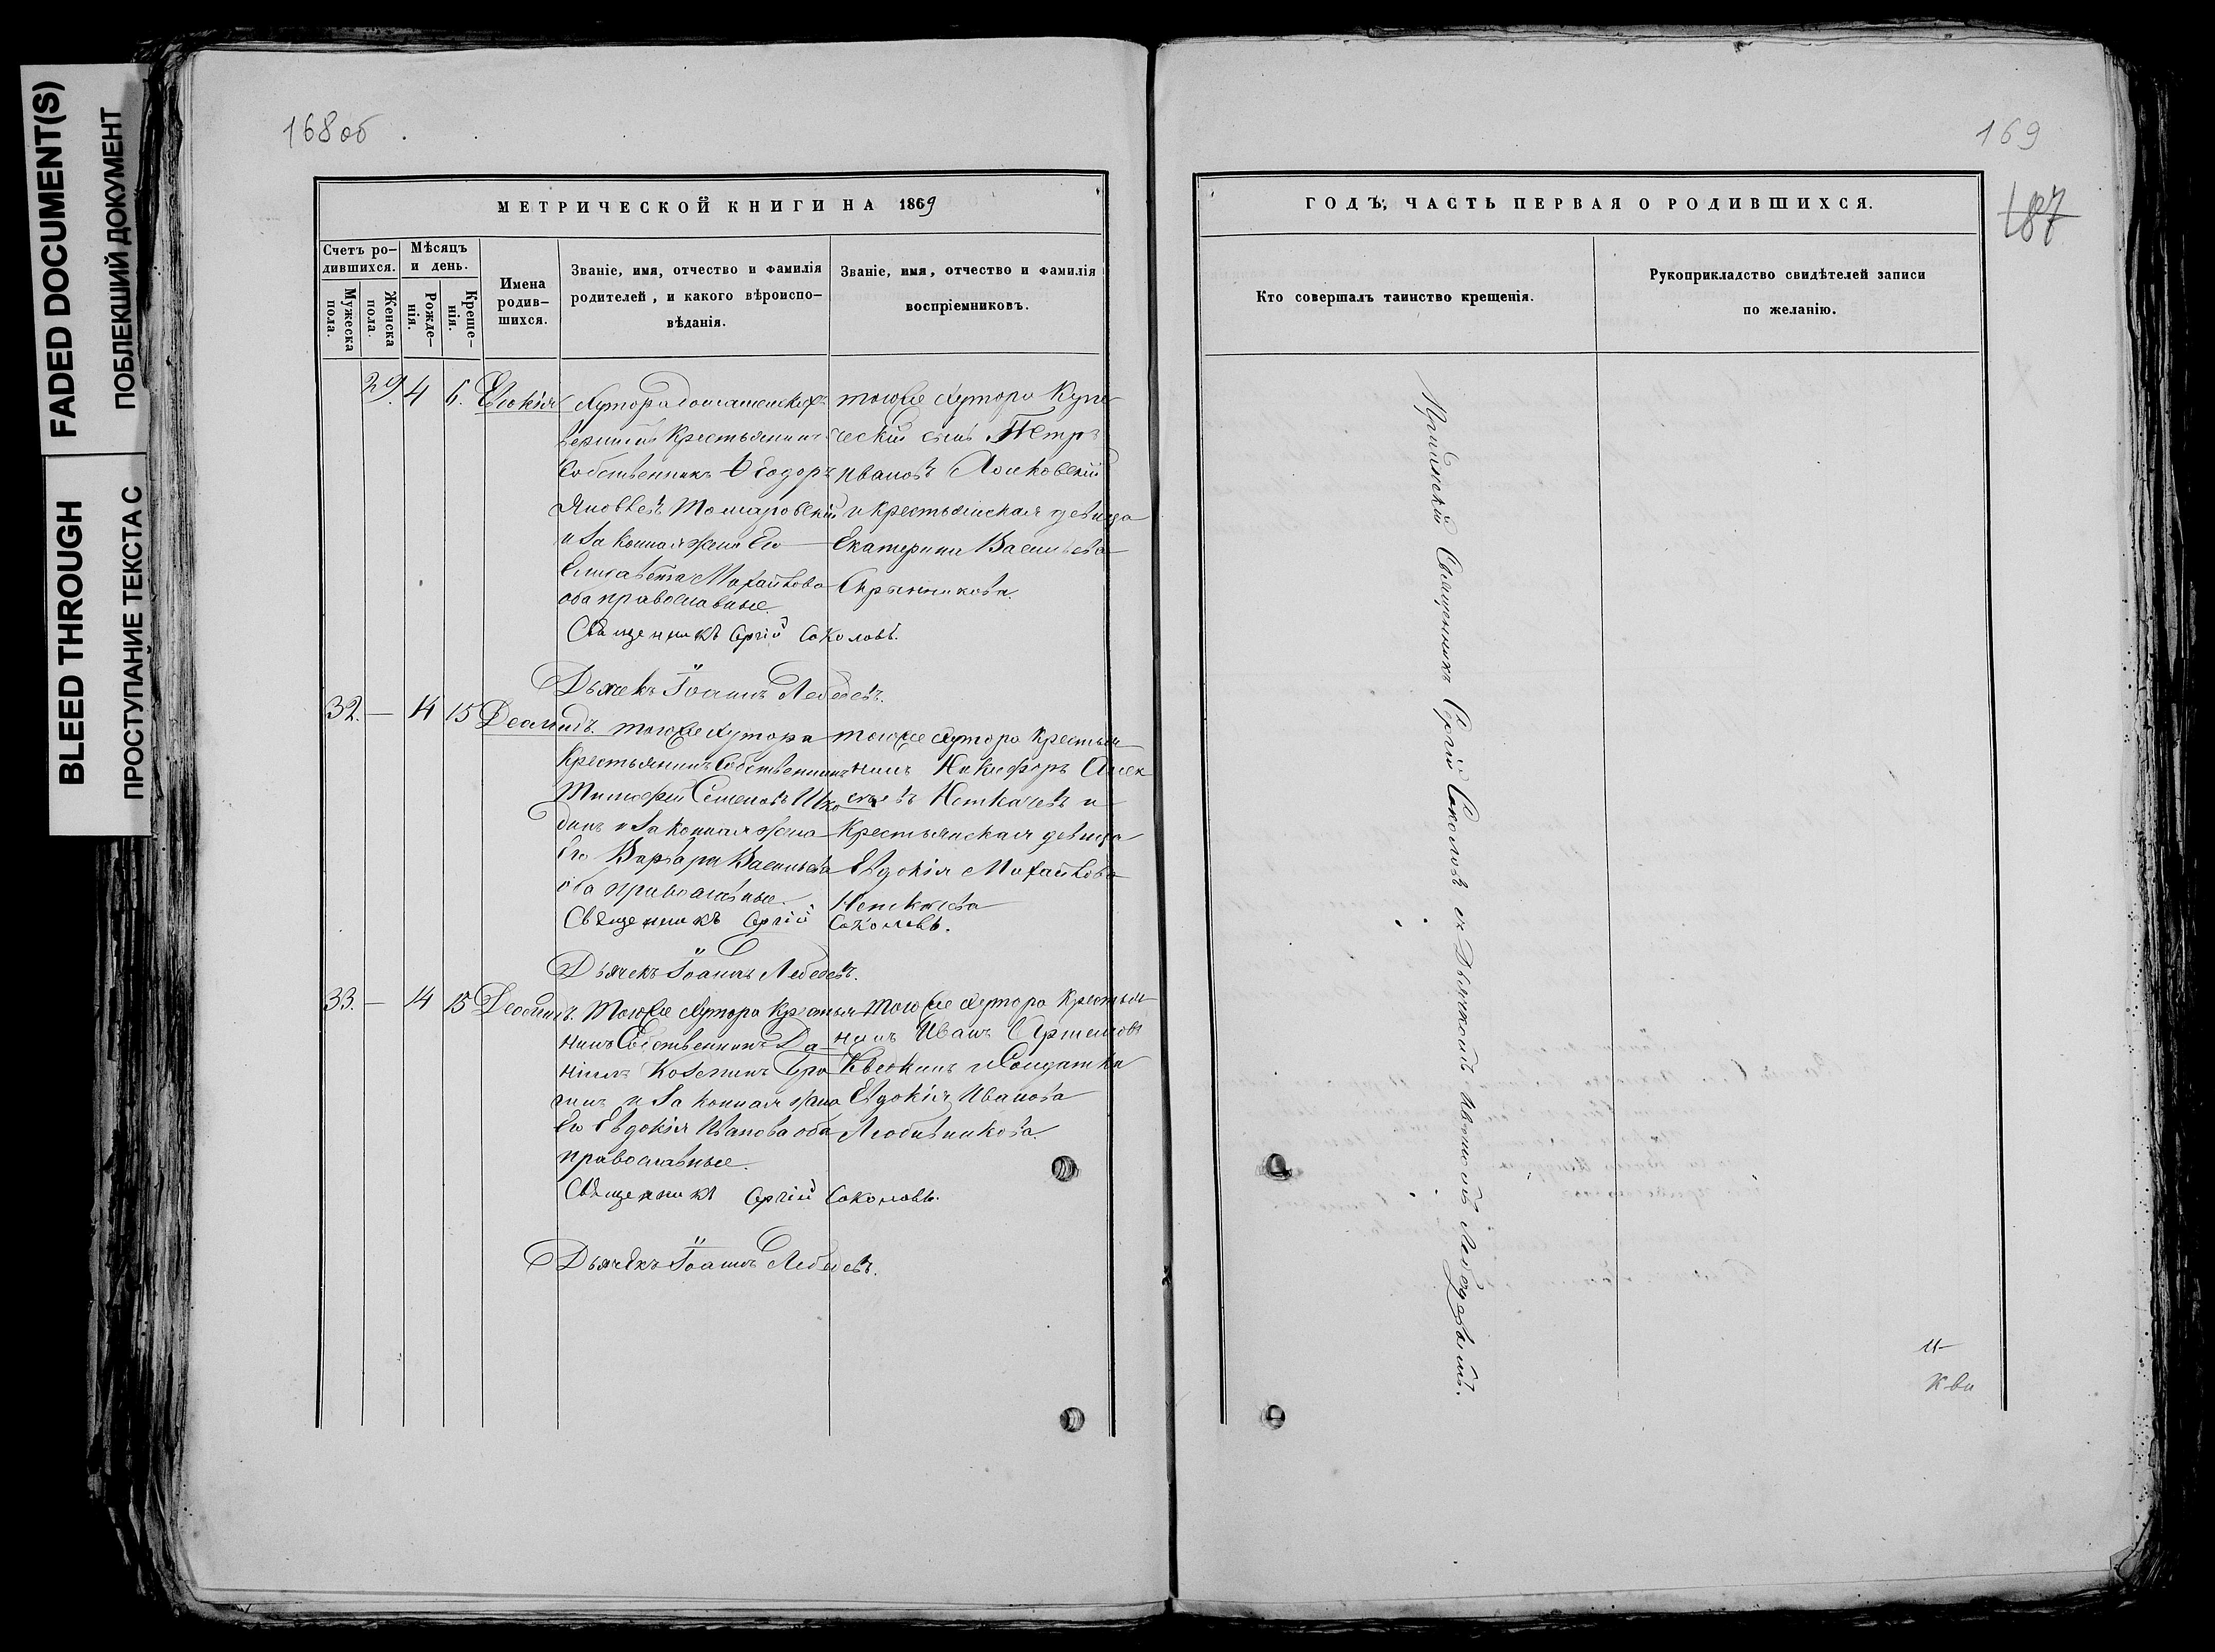 FADED DOCUMENT(S)
ПОБЛЕКШИЙ ДОКУМЕНТ
BLEED THROUGH
ПРОСТУПАНИЕ ТЕКСТА С
168 об
МЕТРИЧЕСКОЙ КНИГИ НА 1869
Счетъ ро-
дившихся.
Мужеска
пола.
Женска
пола.
Мѣсяцъ
и день.
Рожде-
нія.
Креще-
нія.
Имена
родив-
шихся.
Званіе, имя, отчество и фамилія
родителей, и какого вѣроиспо-
вѣданія.
Званіе, имя, отчество и фамилія
воспріемниковъ.
29. 4 6.
Хутора
Крестьянинъ
Собственникъ Ѳеодоръ
Яковлевъ
и Законная жена Его
Елисавета Михайлова
оба православные.
тогоже Хутора Купе-
ческій сынъ Петръ
Ивановъ
и крестьянская девица
Екатерина Васильева
Священникъ Сергій Соколовъ.
Дьячекъ Іоаннъ Лебедевъ.
32. — 14 15
тогоже Хутора
Крестьянинъ Собственникъ
Тимофей Семеновъ
и Законная жена
Его Варвара Васильева
оба православные.
тогоже Хутора Крестья-
нинъ Никифоръ Алек
сѣевъ Неткачевъ и
Крестьянская девица
Евдокія Михайлова
Неткачева
Священникъ Сергій Соколовъ.
Дьячекъ Іоаннъ Лебедевъ.
33. — 14 15
Тогоже Хутора Крестья-
нинъ Собственникъ Да-
ніилъ Козминъ
и Законная жена
Его Евдокія Иванова оба
православные.
тогоже Хутора Крестья-
нинъ Иванъ Артемовъ
и Солдатка
Евдокія Иванова
Священникъ Сергій Соколовъ.
Дьячекъ Іоаннъ Лебедевъ.
169
187
ГОДЪ, ЧАСТЬ ПЕРВАЯ О РОДИВШИХСЯ.
Кто совершалъ таинство крещенія.
Рукоприкладство свидѣтелей записи
по желанію.
Священникъ Сергій Соколовъ съ Дьячкомъ Іоанномъ Лебедевымъ.